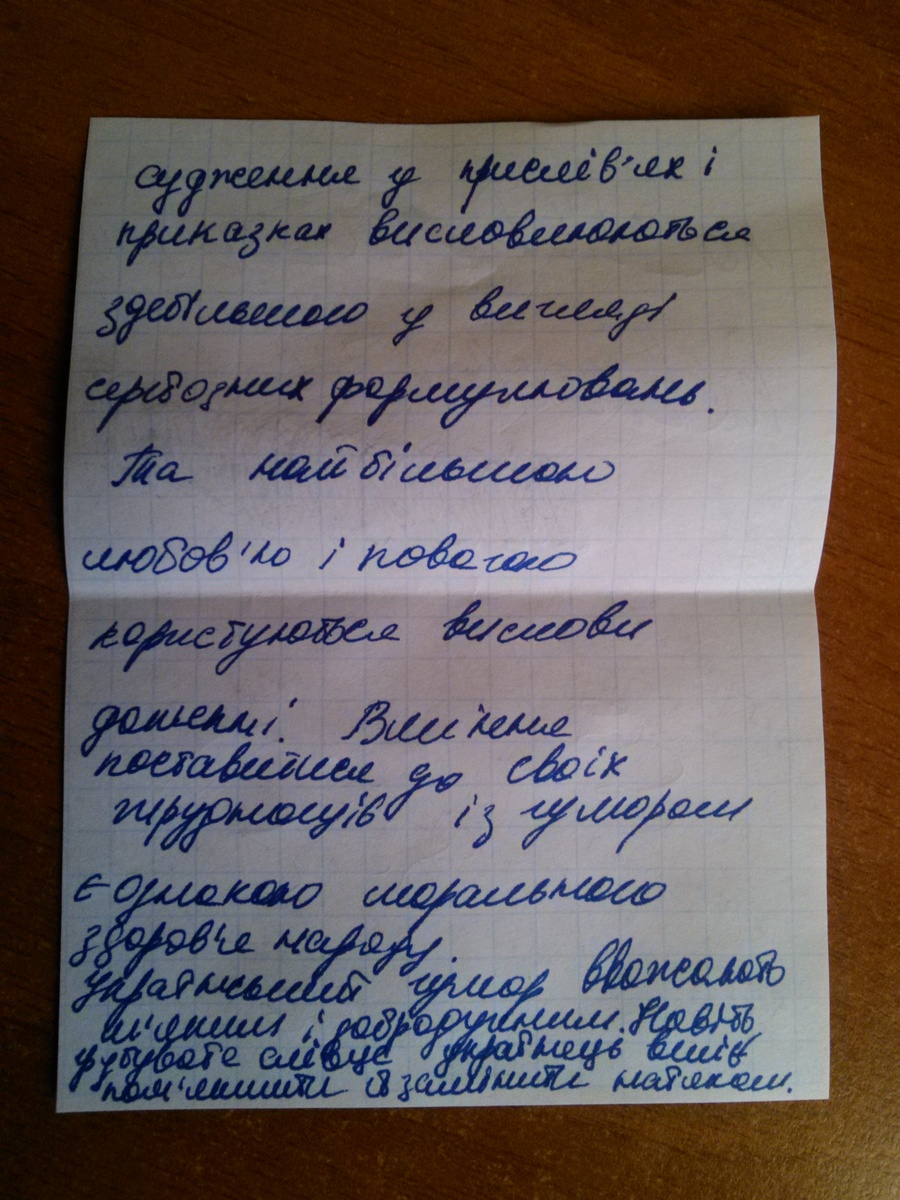 судження у прислів'ях і
приказках висловлюються
здебільшого у вигляді
серйозних формулювань.
Та найбільшою
любов'ю і повагою
користуються вислови
дотепні. Вміння
поставитися до своїх
труднощів із гумором
є ознакою морального
здоров'я народу.
Український гумор вважають
м'яким і добродушним. Навіть
грубувате слівце українець вмів
пом'якшити й замінити натяком.